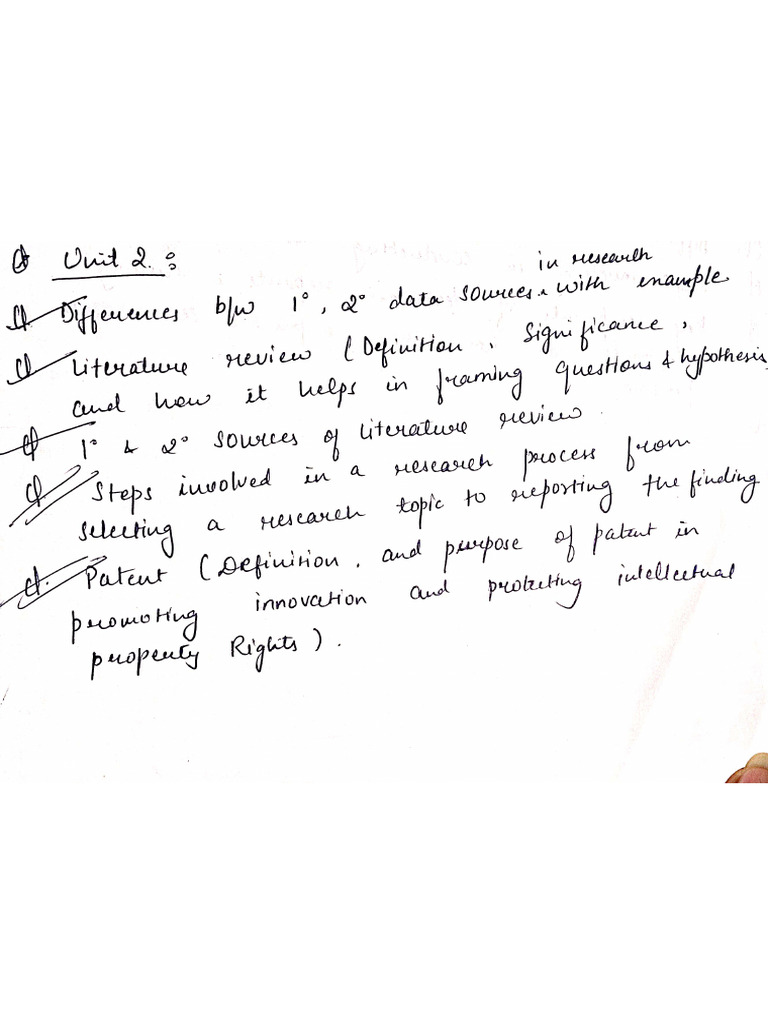 Q Unit 2. :
Q Differences b/w 1°, 2° data sources in research with example
Q Literature review (Definition, Significance,
and how it helps in framing questions & hypothesis
Q 1° & 2° sources of literature review.
Q Steps involved in a research process from
selecting a research topic to reporting the finding
Q. Patent (Definition, and purpose of patent in
promoting innovation and protecting intellectual
property Rights).